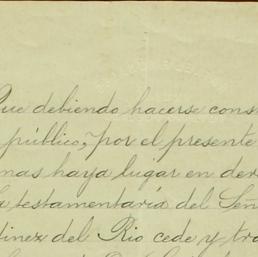 Que debiendo hacerse cons
público, por el presente
mas haya lugar en der
testamentaría del Señ
tinez del Rio cede y tra